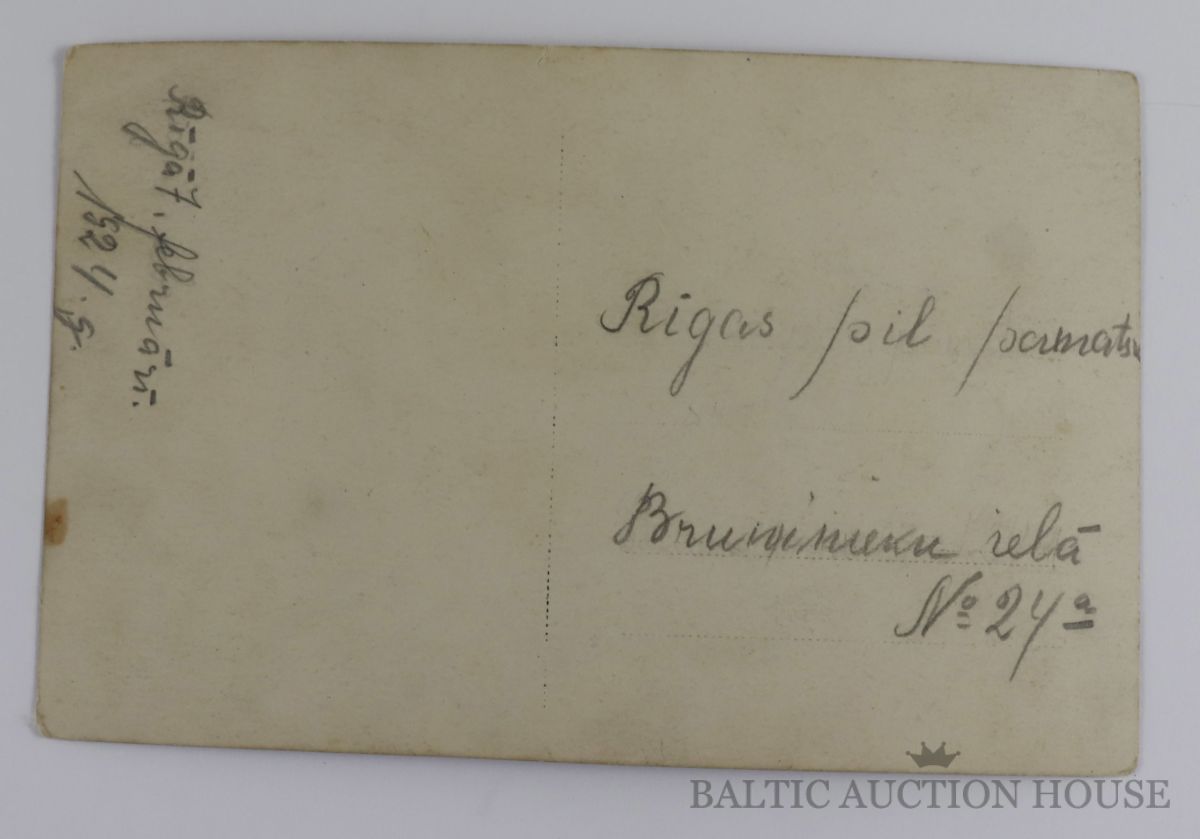 Rīgā 7. februārī.
1924. g.
Rīgas pil pamatsk
Bruņinieku ielā
№ 24a
BALTIC AUCTION HOUSE